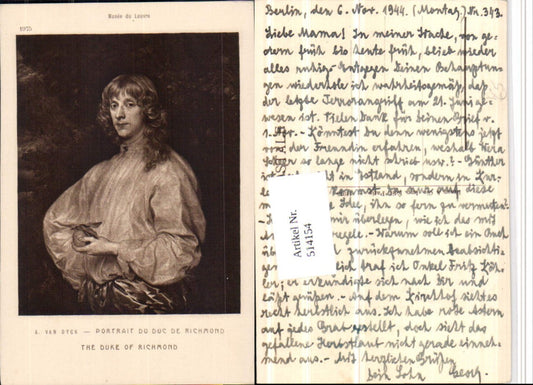 Musée du Louvre
1975
A. VAN DYCK — PORTRAIT DU DUC DE RICHMOND
THE DUKE OF RICHMOND
Berlin, den 6. Nov. 1944. (Montag) Nr. 343.
Liebe Mama! In meiner Wache, von ge-
stern früh bis heute früh, blieb wieder
alles ruhig. Entgegen Deinen Behauptun-
gen wiederhole ich wahrheitsgemäß, daß
der letzte Terrorangriff am 21. Juni ge-
wesen ist. Vielen Dank für Deinen Brief v.
1. Könntest Du denn wenigstens jetzt
von der Freundin erfahren, weshalb Vera
so lange nicht schrieb usw.? - Günther
ist nicht in Estland, sondern in Kur-
auf diese
Idee, ihn so fern zu vermuten?
mir überlegen, wie ich das mit
regele. - Warum soll ich ein Buch
zurückgenommen
lich traf ich Onkel Fritz
ler; er erkundigte sich nach Dir und
läßt grüßen. - Auf dem Kirchhof sieht es
recht herbstlich aus. Ich habe rote Astern
auf jedes Grab gestellt, doch sieht das
gefallene Herbstlaub nicht gerade einneh-
mend aus. - Mit herzlichen Grüßen
Dein Sohn
Artikel Nr.
514154